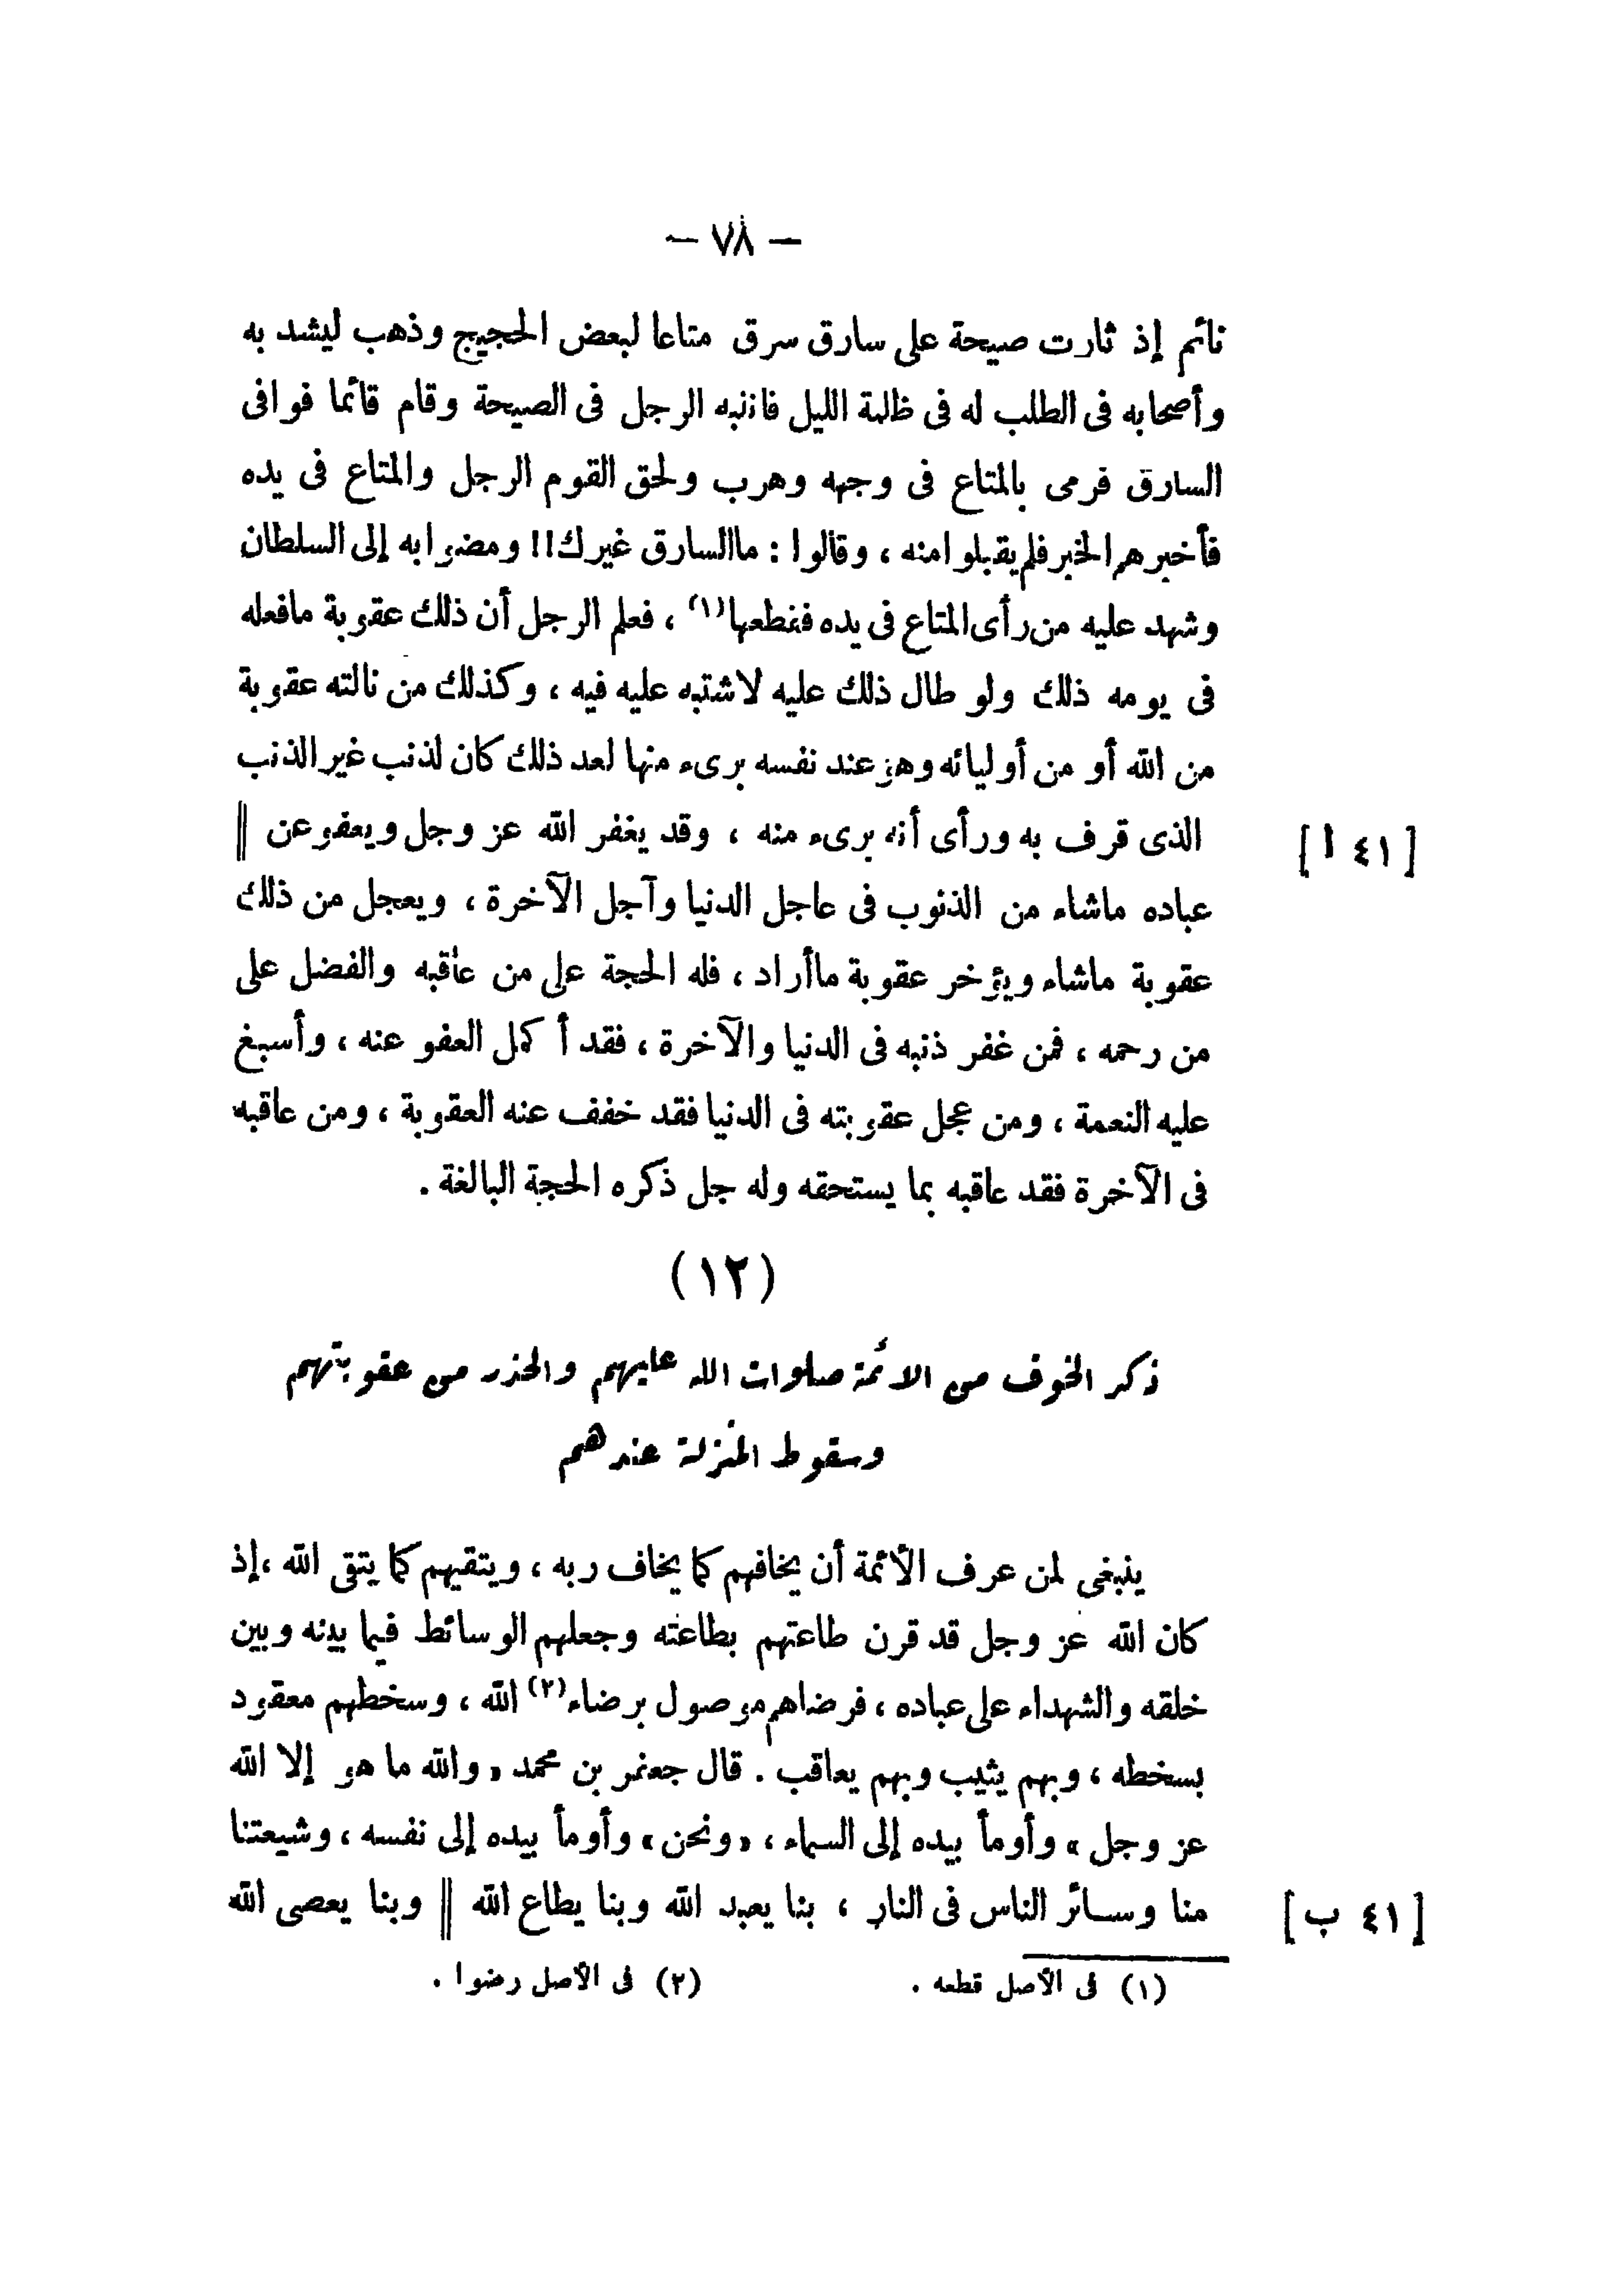 — ٧٨ —
نائم إذ ثارت صيحة على سارق سرق متاعا لبعض الحجيج وذهب ليشد به
وأصحابه فى الطلب له فى ظلمة الليل فانتبه الرجل فى الصيحة وقام قائما فوافى
السارق فرمى بالمتاع فى وجهه وهرب ولحق القوم الرجل والمتاع فى يده
فأخبرهم الخبر فلم يقبلوا منه ، وقالوا : ما السارق غيرك !! ومضوا به إلى السلطان
وشهد عليه من رأى المتاع فى يده فقطعها (١) ، فعلم الرجل أن ذلك عقوبة مافعله
فى يومه ذلك ولو طال ذلك عليه لاشتبه عليه فيه ، وكذلك من نالته عقوبة
من الله أو من أوليائه وهو عند نفسه برىء منها لعد ذلك كان لذنب غير الذنب
الذى قرف به ورأى أنه برىء منه ، وقد يغفر الله عز وجل ويعفو عن || [ ٤١ أ ]
عباده ماشاء من الذنوب فى عاجل الدنيا وآجل الآخرة ، ويعجل من ذلك
عقوبة ماشاء ويؤخر عقوبة ماأراد ، فله الحجة على من عاقبه والفضل على
من رحمه ، فمن غفر ذنبه فى الدنيا والآخرة ، فقد أكمل العفو عنه ، وأسبغ
عليه النعمة ، ومن عجل عقوبته فى الدنيا فقد خفف عنه العقوبة ، ومن عاقبه
فى الآخرة فقد عاقبه بما يستحقه وله جل ذكره الحجة البالغة .
(١٢)
ذكر الخوف من الائمة صلوات الله عليهم والحذر من عقوبتهم
وسقوط المنزلة عندهم
ينبغى لمن عرف الأئمة أن يخافهم كما يخاف ربه ، ويتقيهم كما يتقى الله ، إذ
كان الله عز وجل قد قرن طاعتهم بطاعته وجعلهم الوسائط فيما بينه وبين
خلقه والشهداء على عباده ، فرضاهم موصول برضاء (٢) الله ، وسخطهم معقود
بسخطه ، وبهم يثيب وبهم يعاقب . قال جعفر بن محمد « والله ما هو إلا الله
عز وجل » وأومأ بيده إلى السماء ، « ونحن » وأومأ بيده إلى نفسه ، وشيعتنا
منا وسائر الناس فى النار ، بنا يعبد الله وبنا يطاع الله || وبنا يعصى الله [ ٤١ ب ]
(١) فى الأصل قطعه . (٢) فى الأصل رضوا .